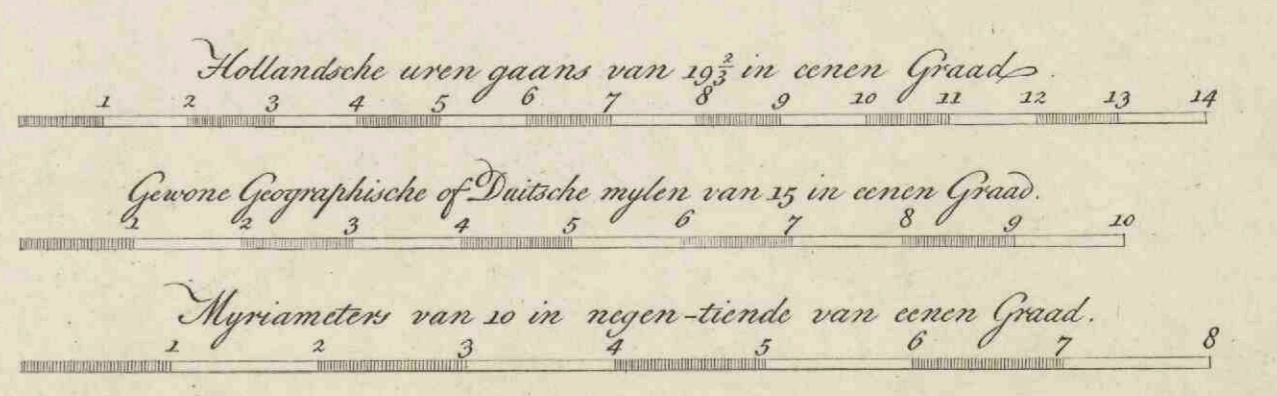 Hollandsche uren gaans van 19⅔ in eenen Graad.
1 2 3 4 5 6 7 8 9 10 11 12 13 14
Gewone Geographische of Duitsche mylen van 15 in eenen Graad.
1 2 3 4 5 6 7 8 9 10
Myriameters van 10 in negen-tiende van eenen Graad.
1 2 3 4 5 6 7 8